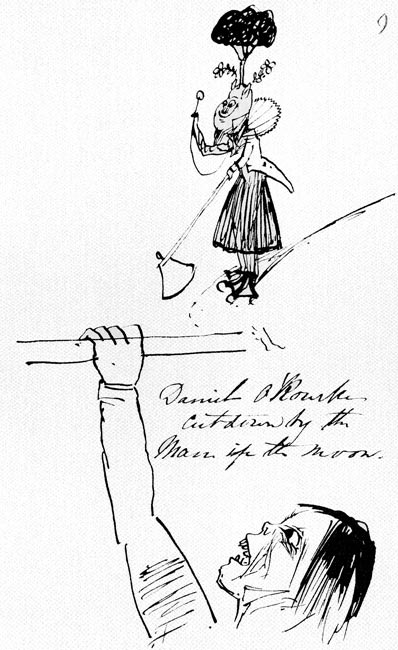 Daniel O'Rourke
cut down by the
Man in the moon.